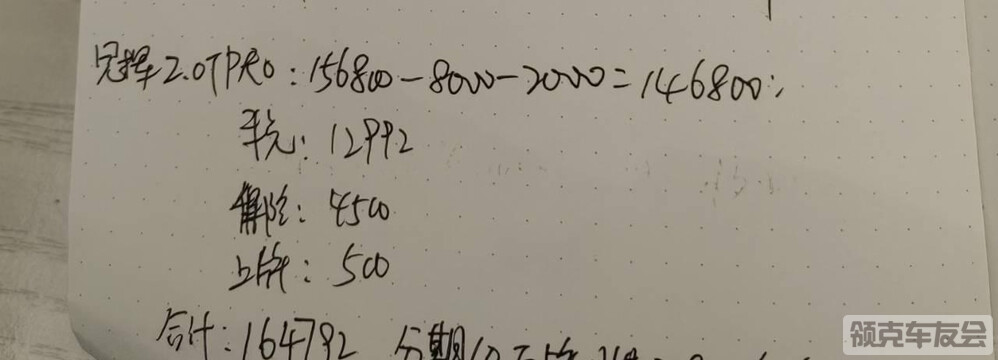 2.0TPRO：156800-8000-2000=146800；
税：12992
保险：4500
上牌：500
合计：164792 分期10万
领克车友会